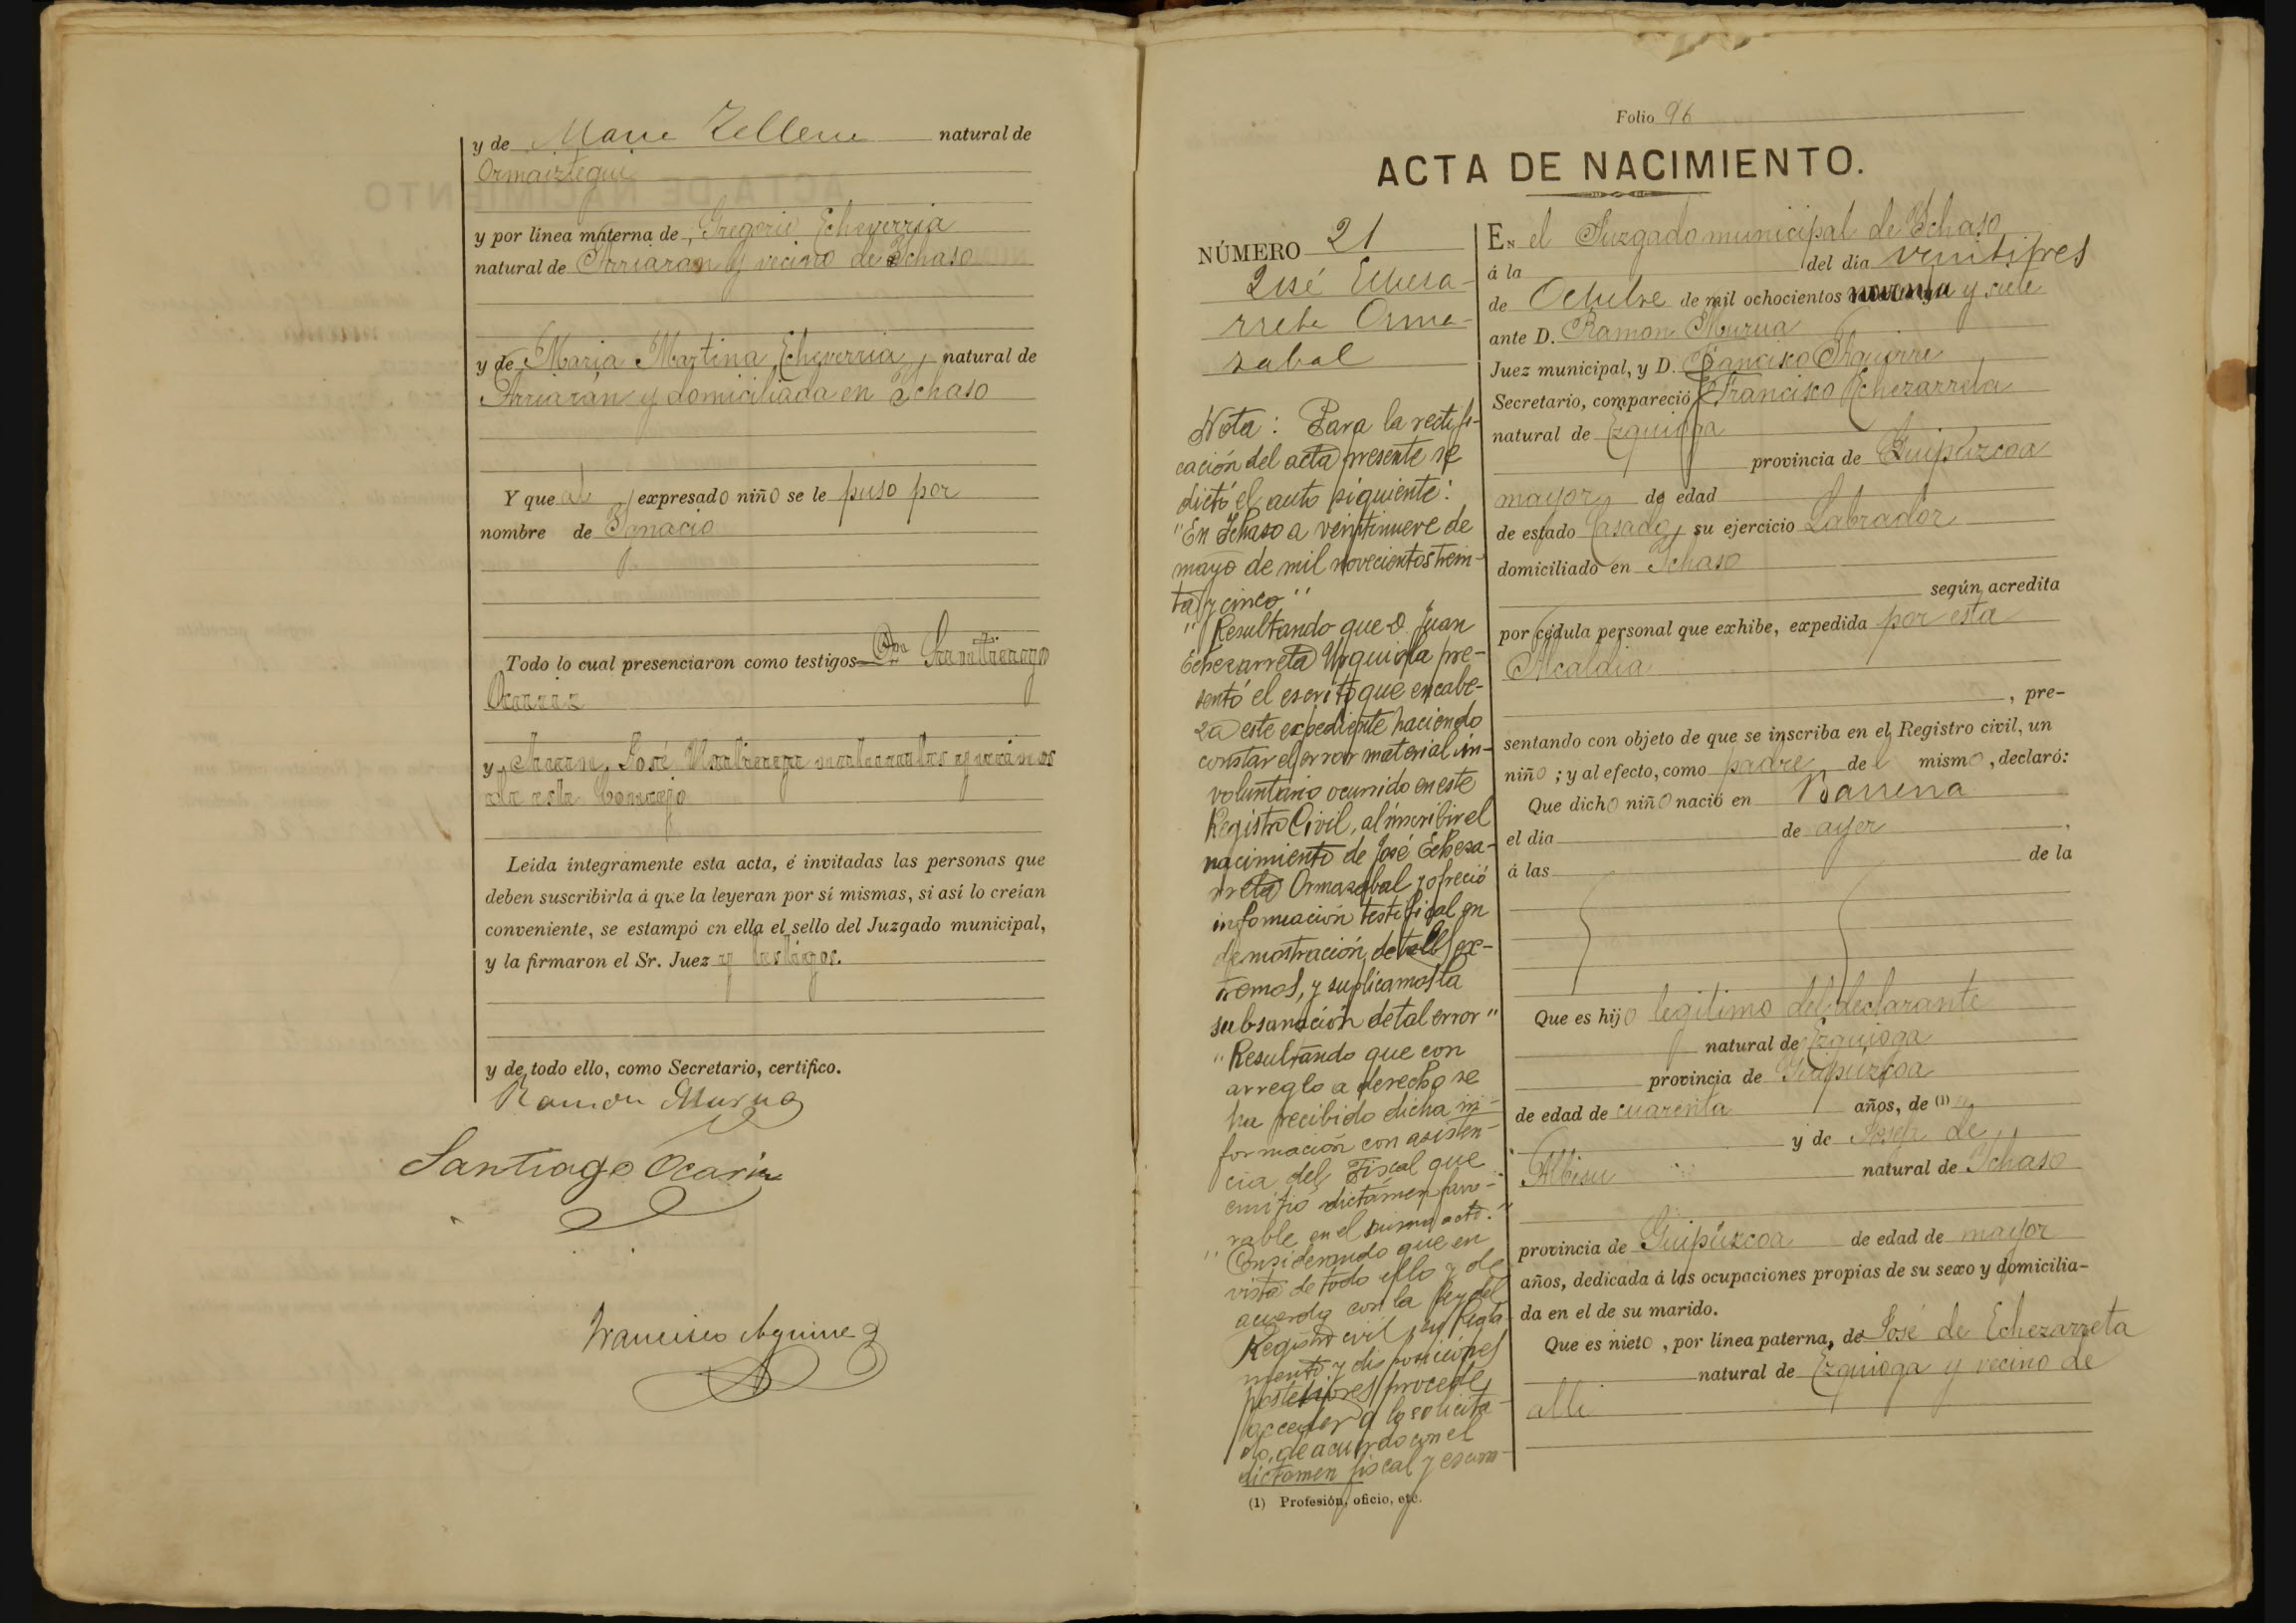 y de Maria Telleria natural de
Ormaiztegui
y por línea materna de Gregorio Echeverria
natural de Arriaran y vecino de Ichaso
y de Maria Martina Echeverria, natural de
Arriarán y domiciliada en Ichaso
Y que al expresado niño se le puso por
nombre de Ignacio
Todo lo cual presenciaron como testigos Dn Santiago
Ocariz
y Juan José Ustiraga naturales y vecinos
de este Concejo
Leída íntegramente esta acta, é invitadas las personas que
deben suscribirla á que la leyeran por sí mismas, si así lo creían
conveniente, se estampó en ella el sello del Juzgado municipal,
y la firmaron el Sr. Juez y testigos.
y de todo ello, como Secretario, certifico.
Ramon Murua
Santiago Ocariz
Francisco Aguirre
Folio 96
ACTA DE NACIMIENTO.
NÚMERO 21
José Echeza-
rreta Orma-
zabal
Nota: Para la rectifi-
cación del acta presente se
dictó el auto siguiente:
"En Ichaso a veintinueve de
mayo de mil novecientos trein-
ta y cinco"
"Resultando que D. Juan
Echezarreta Urquiola pre-
sentó el escrito que encabe-
za este expediente haciendo
constar el error material in-
voluntario ocurrido en este
Registro Civil, al inscribir el
nacimiento de José Echeza-
rreta Ormazabal y ofreció
información testifical en
demostración de tal ex-
tremos, y suplicamos la
subsanación de tal error"
"Resultando que con
arreglo a derecho se
ha recibido dicha in-
formación con asisten-
cia del Fiscal que
emitió dictámen favo-
rable en el mismo acto."
"Considerando que en
vista de todo ello y de
acuerdo con la ley del
Registro civil, su Regla-
mento y disposiciones
posteriores procede
acceder a lo solicita-
do, de acuerdo con el
dictamen fiscal y
(1) Profesión, oficio, etc.
En el Juzgado municipal de Ichaso
á la del día veintitres
de Octubre de mil ochocientos noventa y siete
ante D. Ramon Murua
Juez municipal, y D. Francisco Aguirre
Secretario, compareció Francisco Echezarreta
natural de Ezquioga
provincia de Guipúzcoa
mayor de edad
de estado Casado, su ejercicio Labrador
domiciliado en Ichaso
según acredita
por cédula personal que exhibe, expedida por esta
Alcaldia
, pre-
sentando con objeto de que se inscriba en el Registro civil, un
niño; y al efecto, como padre del mismo, declaró:
Que dicho niño nació en Barrena
el día de ayer,
á las de la
Que es hijo legitimo del declarante
natural de Ezquioga
provincia de Guipúzcoa
de edad de cuarenta años, de (1)
y de Josefa de
Albisu natural de Ichaso
provincia de Guipúzcoa de edad de mayor
años, dedicada á las ocupaciones propias de su sexo y domicilia-
da en el de su marido.
Que es nieto, por línea paterna, de José de Echezarreta
natural de Ezquioga y vecino de
alli